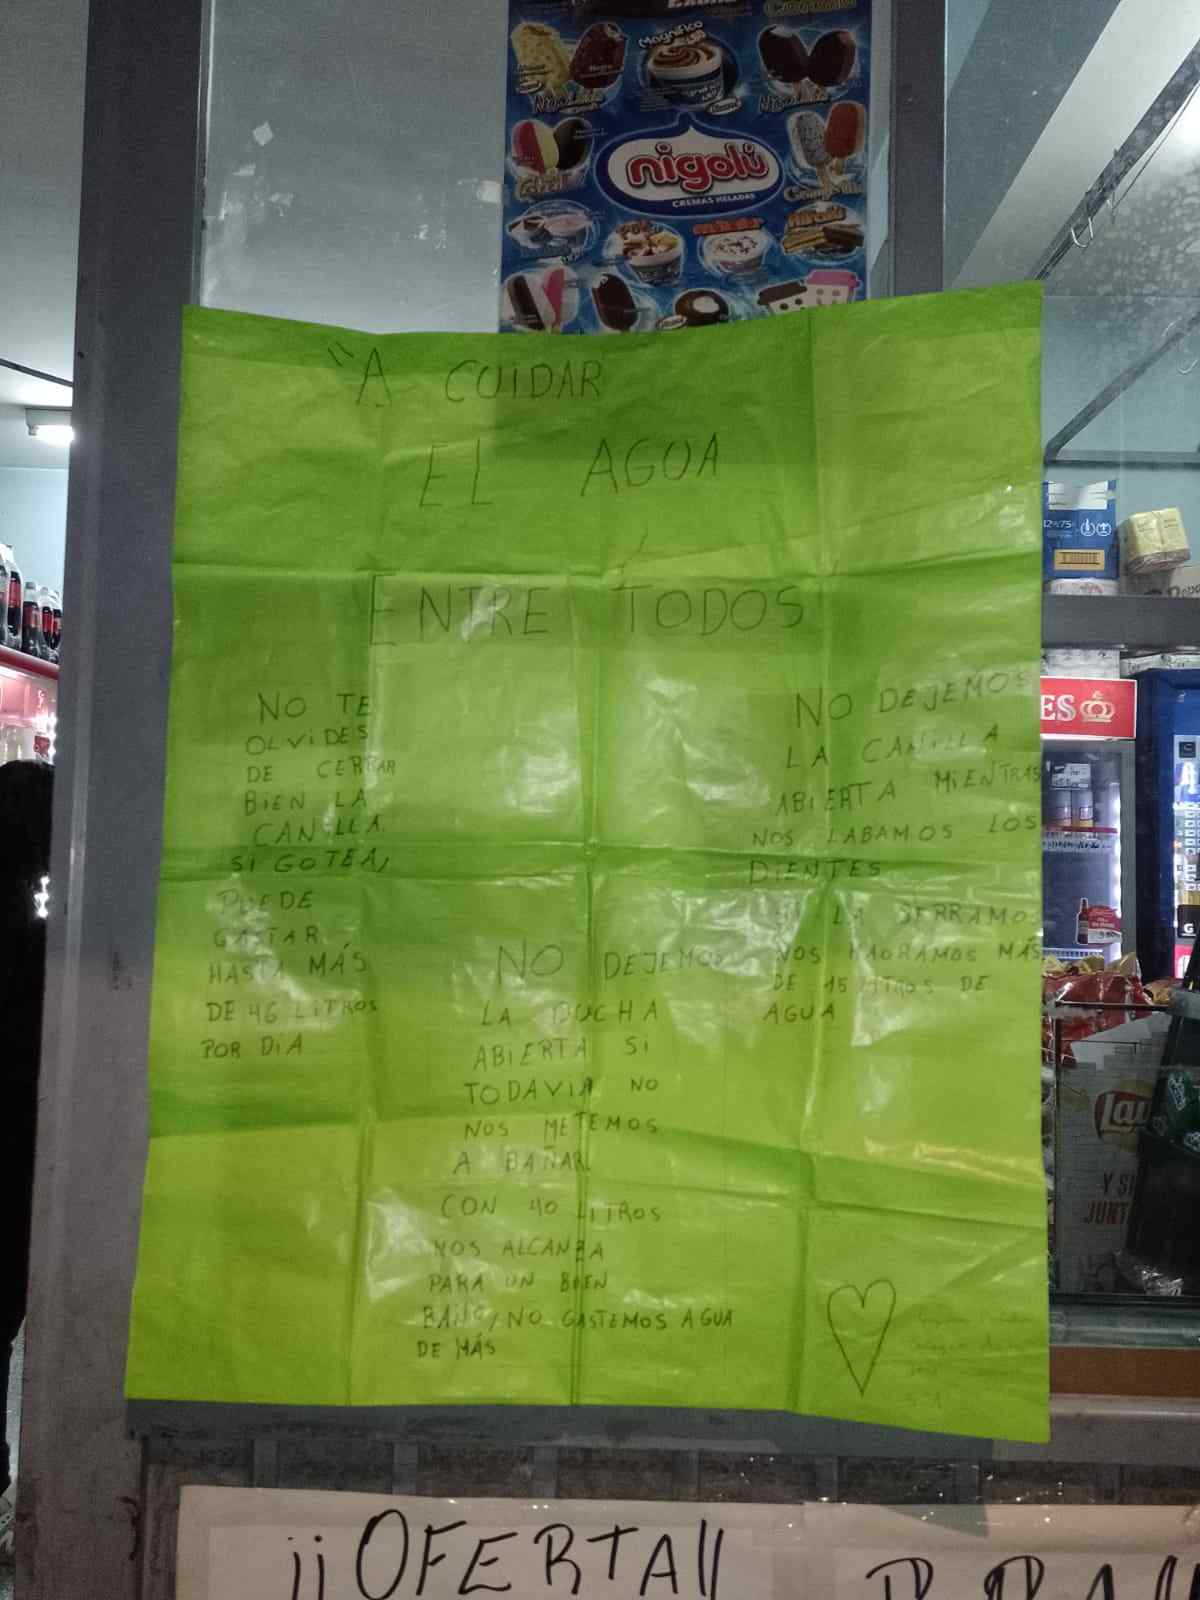 Magnífico
nigolú
CREMAS HELADAS
"A CUIDAR
EL AGUA
ENTRE TODOS
NO TE
OLVIDES
DE CERRAR
BIEN LA
CANILLA.
SI GOTEA,
PUEDE
GASTAR
HASTA MÁS
DE 46 LITROS
POR DIA
NO DEJEMOS
LA DUCHA
ABIERTA SI
TODAVIA NO
NOS METEMOS
A BAÑAR.
CON 40 LITROS
NOS ALCANZA
PARA UN BUEN
BAÑO, NO GASTEMOS AGUA
DE MÁS
NO DEJEMOS
LA CANILLA
ABIERTA MIENTRAS
NOS LABAMOS LOS
DIENTES
SI LA SERRAMOS
NOS HAORAMOS MÁS
DE 15 LITROS DE
AGUA
ES
Lay
Y SI
JUNT
¡¡OFERTA!!